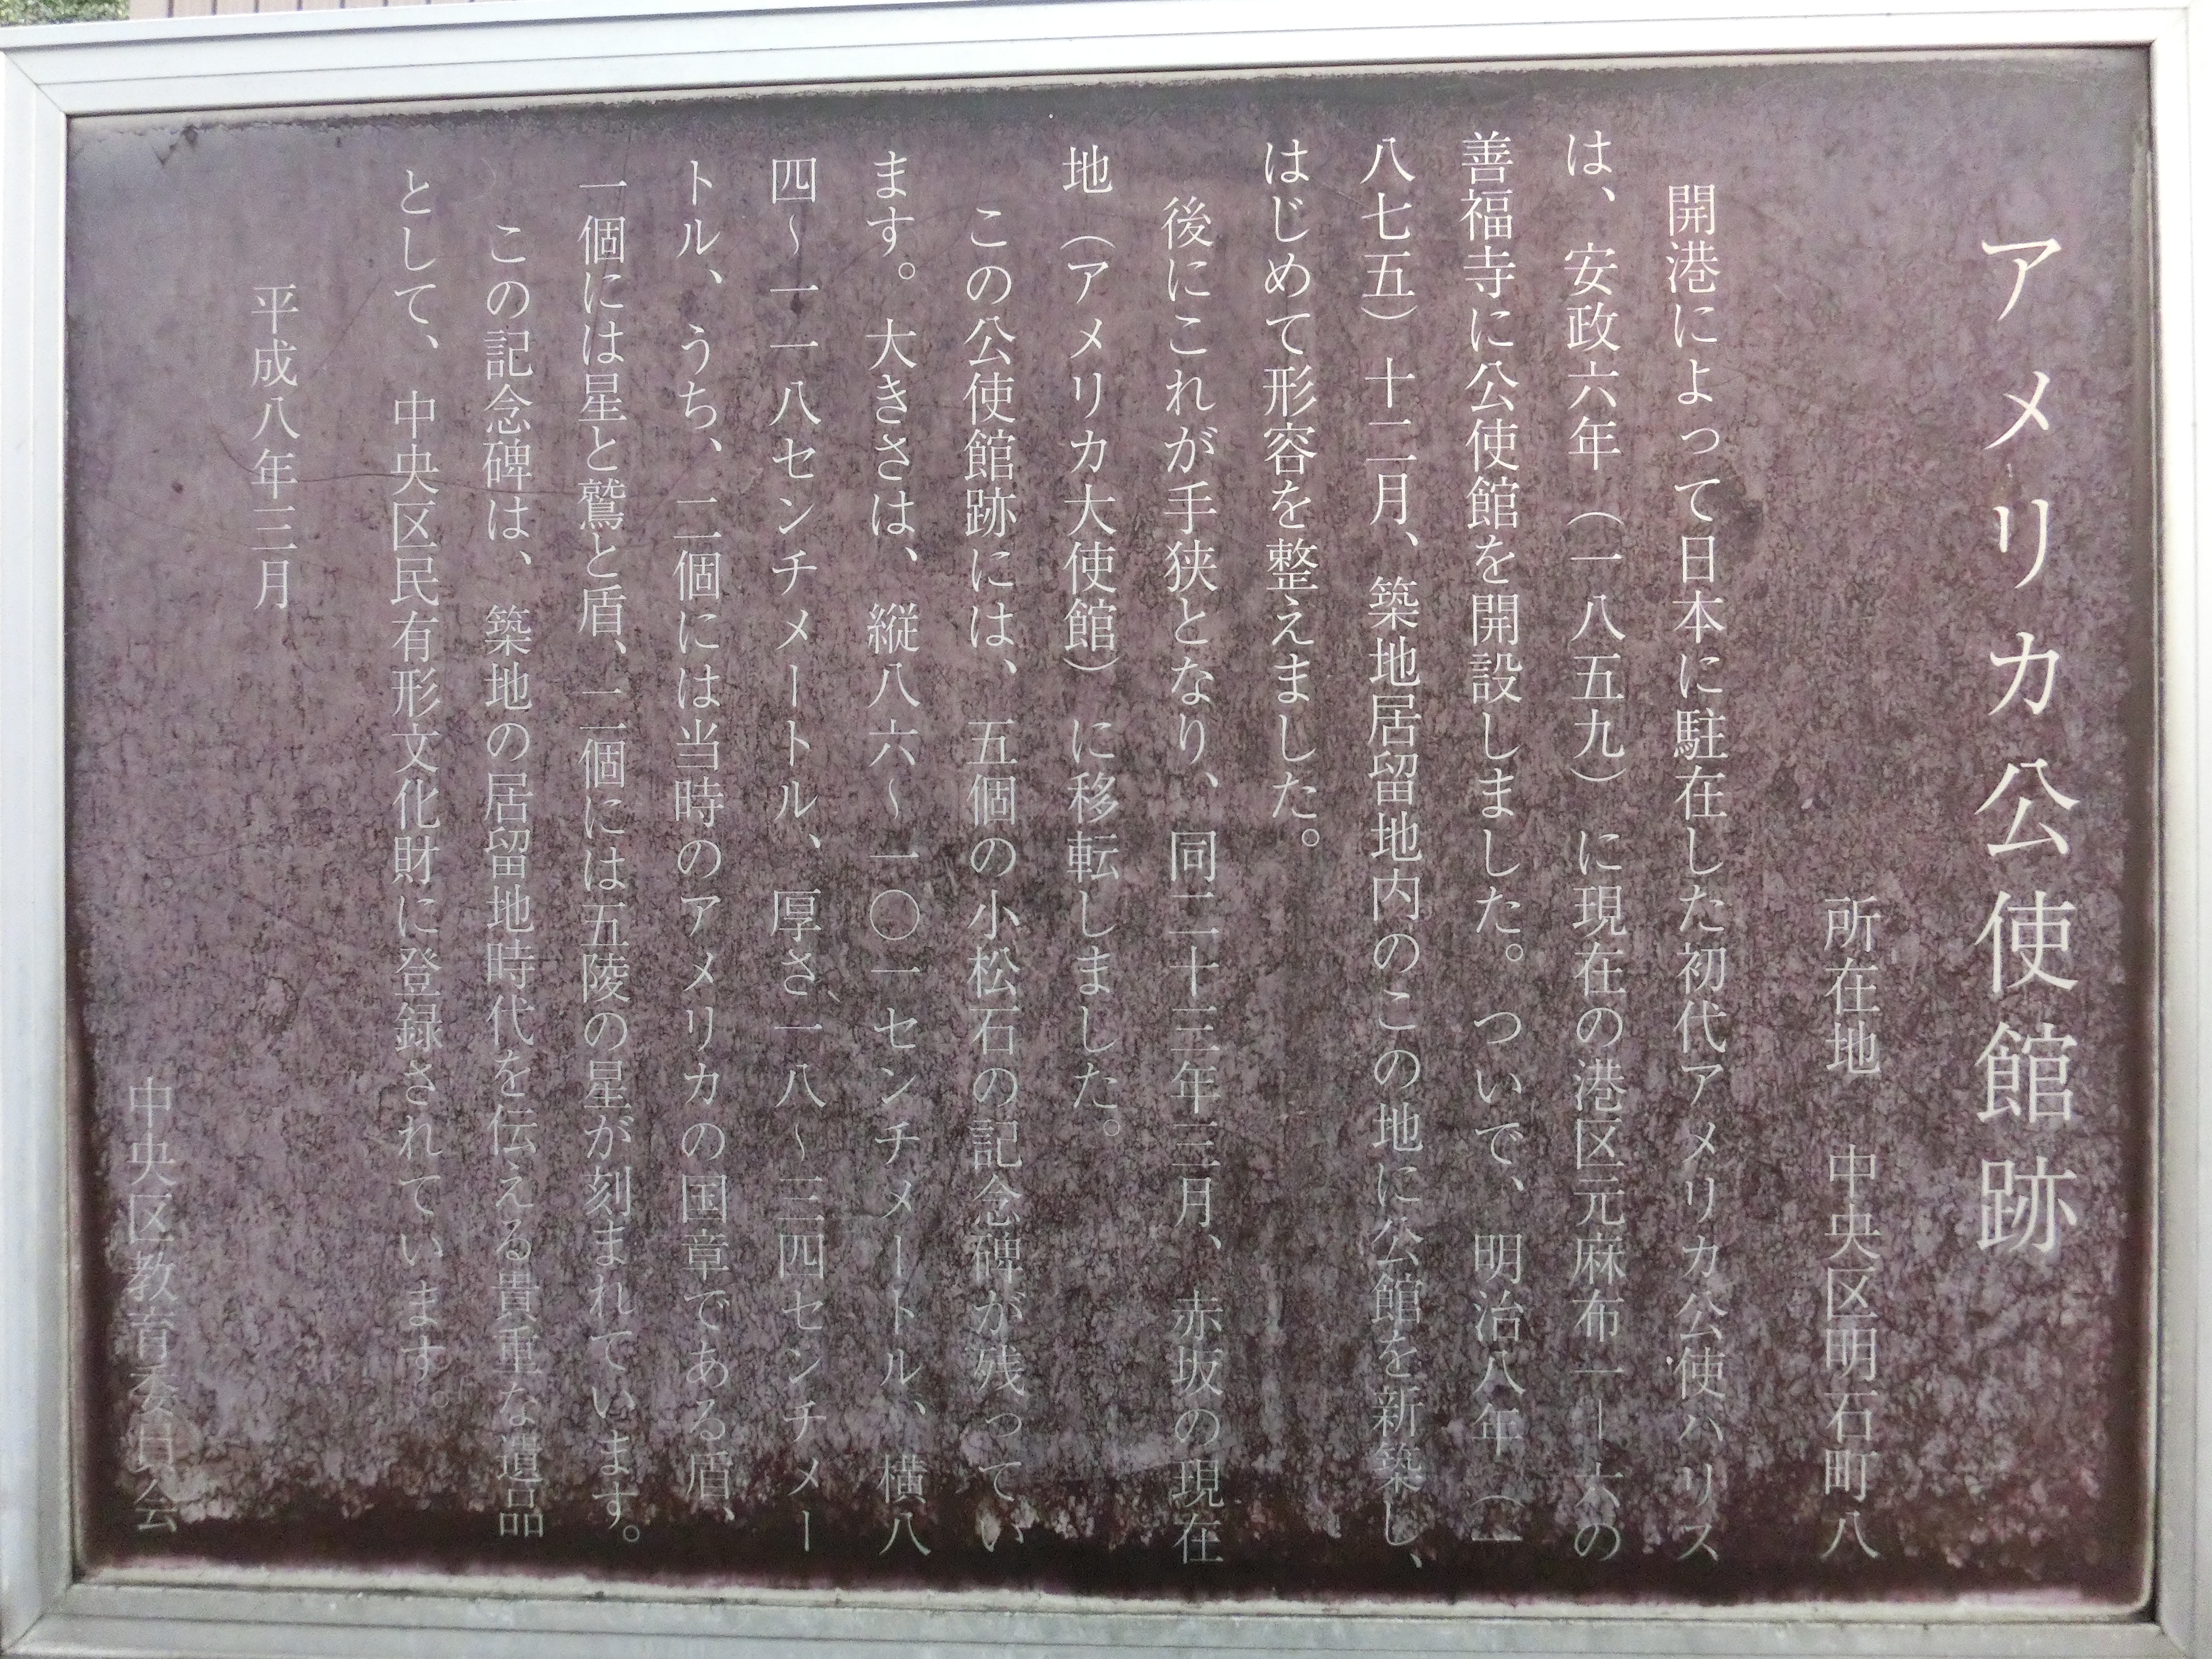 アメリカ公使館跡
所在地　中央区明石町八
開港によって日本に駐在した初代アメリカ公使ハリス
は、安政六年（一八五九）に現在の港区元麻布一―六の
善福寺に公使館を開設しました。ついで、明治八年（一
八七五）十二月、築地居留地内のこの地に公館を新築し、
はじめて形容を整えました。
後にこれが手狭となり、同二十三年三月、赤坂の現在
地（アメリカ大使館）に移転しました。
この公使館跡には、五個の小松石の記念碑が残ってい
ます。大きさは、縦八六～一〇一センチメートル、横八
四～一一八センチメートル、厚さ一八～三四センチメー
トル、うち、二個には当時のアメリカの国章である盾、
一個には星と鷲と盾、二個には五陵の星が刻まれています。
この記念碑は、築地の居留地時代を伝える貴重な遺品
として、中央区民有形文化財に登録されています。
平成八年三月
中央区教育委員会